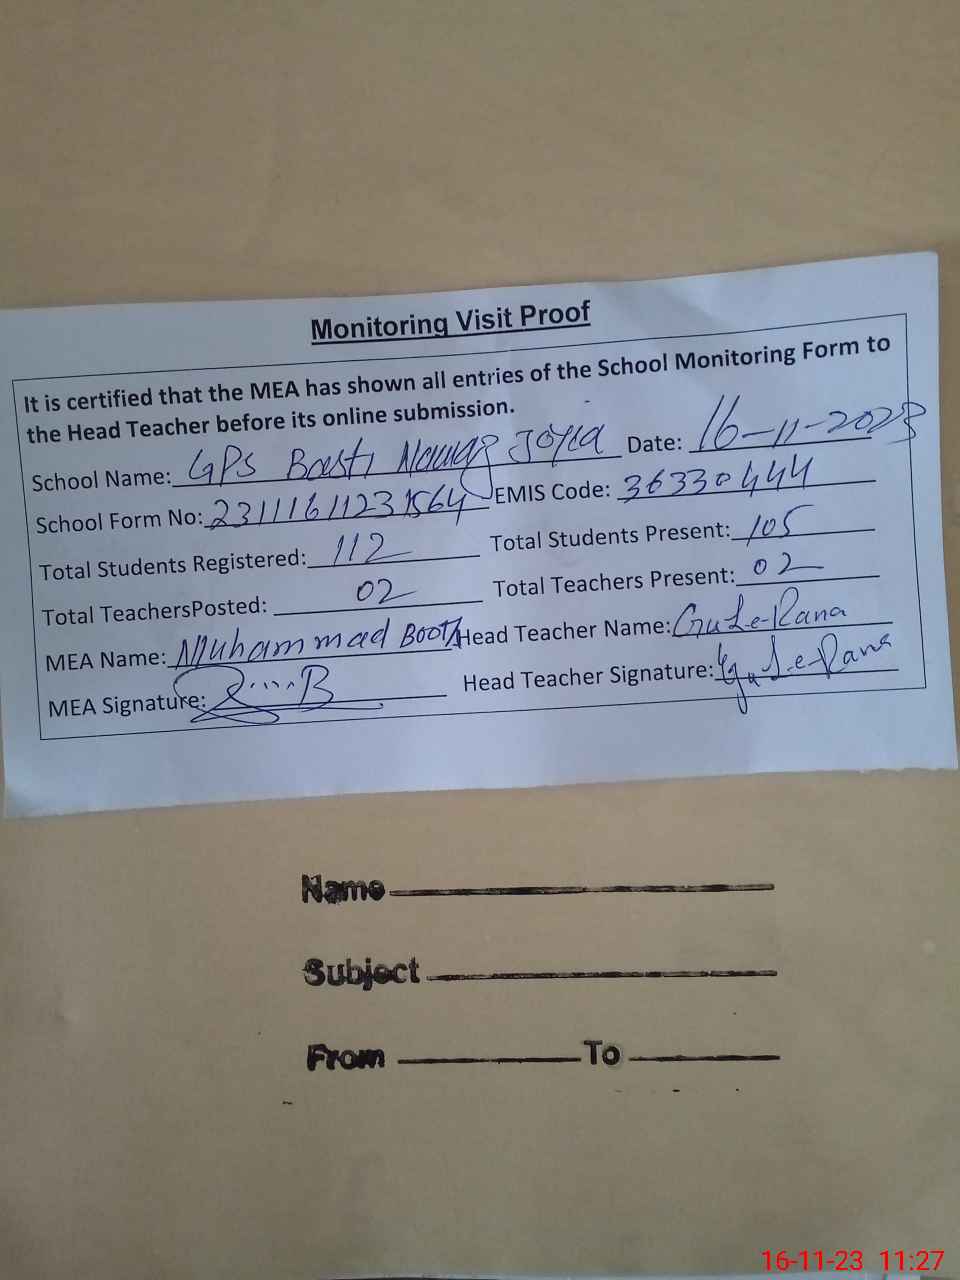 Monitoring Visit Proof
It is certified that the MEA has shown all entries of the School Monitoring Form to
the Head Teacher before its online submission.
School Name: GPS Basti Nawaz Joyia Date: 16-11-2023
School Form No: 23111611231564 EMIS Code: 36330444
Total Students Registered: 112 Total Students Present: 105
Total TeachersPosted: 02 Total Teachers Present: 02
MEA Name: Muhammad Boota Head Teacher Name: Gul-e-Rana
MEA Signature: Head Teacher Signature: Gul-e-Rana
Name
Subject
From To
16-11-23 11:27